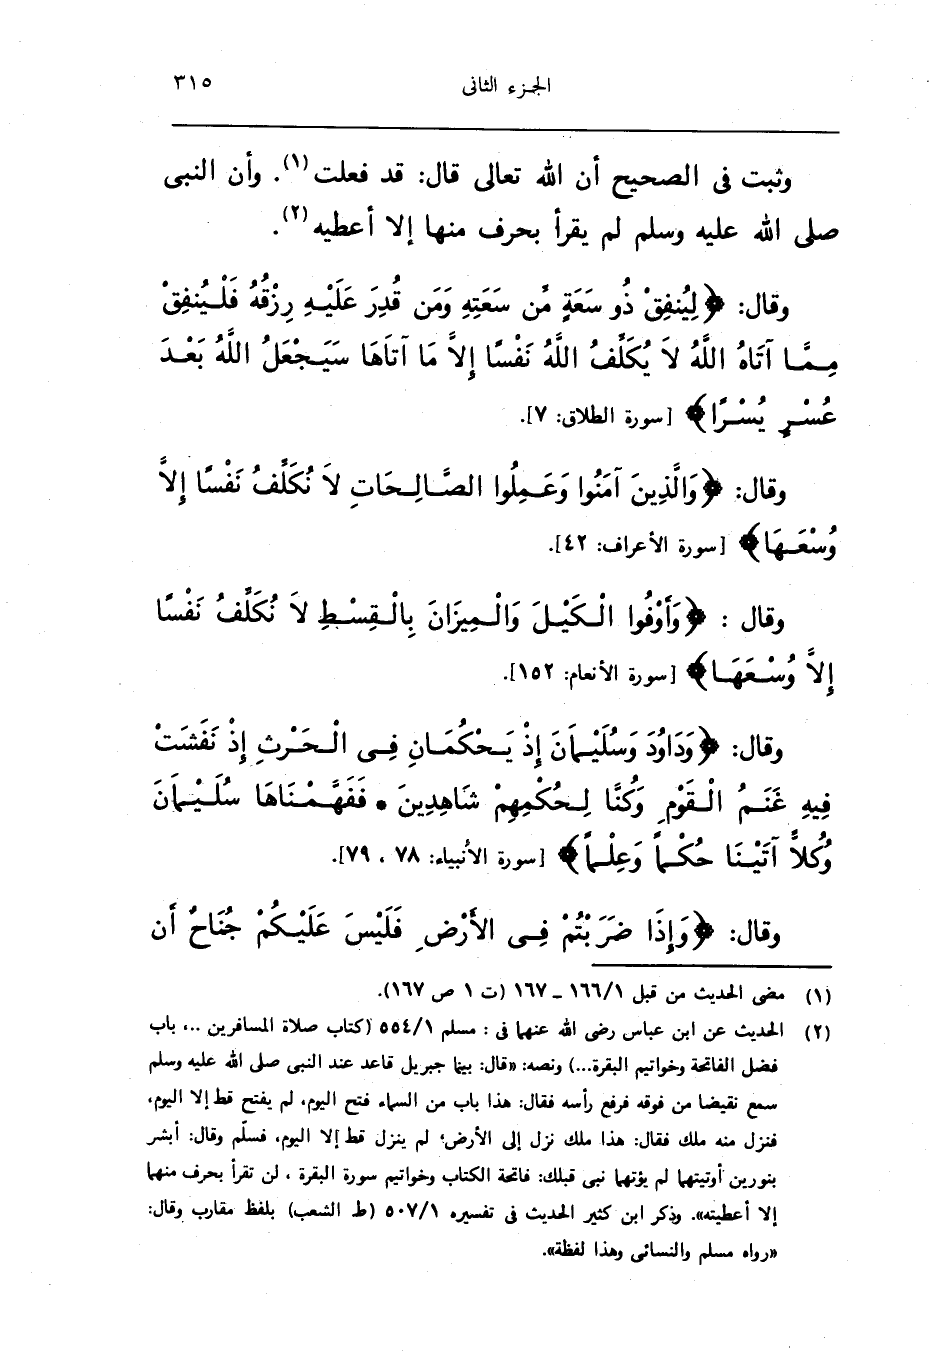 الجزء الثانى ٣١٥
وثبت فى الصحيح أن الله تعالى قال: قد فعلت(١). وأن النبى
صلى الله عليه وسلم لم يقرأ بحرف منها إلا أعطيه(٢).
وقال: ﴿لِيُنفِقْ ذُو سَعَةٍ مِّن سَعَتِهِ وَمَن قُدِرَ عَلَيْهِ رِزْقُهُ فَلْيُنفِقْ
مِمَّا آتَاهُ اللَّهُ لاَ يُكَلِّفُ اللَّهُ نَفْسًا إِلاَّ مَا آتَاهَا سَيَجْعَلُ اللَّهُ بَعْدَ
عُسْرٍ يُسْرًا﴾ [سورة الطلاق: ٧].
وقال: ﴿وَالَّذِينَ آمَنُوا وَعَمِلُوا الصَّالِحَاتِ لاَ نُكَلِّفُ نَفْسًا إِلاَّ
وُسْعَهَا﴾ [سورة الأعراف: ٤٢].
وقال : ﴿وَأَوْفُوا الْكَيْلَ وَالْمِيزَانَ بِالْقِسْطِ لاَ نُكَلِّفُ نَفْسًا
إِلاَّ وُسْعَهَا﴾ [سورة الأنعام: ١٥٢].
وقال: ﴿وَدَاوُدَ وَسُلَيْمَانَ إِذْ يَحْكُمَانِ فِى الْحَرْثِ إِذْ نَفَشَتْ
فِيهِ غَنَمُ الْقَوْمِ وَكُنَّا لِحُكْمِهِمْ شَاهِدِينَ • فَفَهَّمْنَاهَا سُلَيْمَانَ
وَكُلاًّ آتَيْنَا حُكْماً وَعِلْماً﴾ [سورة الأنبياء: ٧٨ ، ٧٩].
وقال: ﴿وَإِذَا ضَرَبْتُمْ فِى الأَرْضِ فَلَيْسَ عَلَيْكُمْ جُنَاحٌ أَن
(١) مضى الحديث من قبل ١٦٦/١ ــ ١٦٧ (ت ١ ص ١٦٧).
(٢) الحديث عن ابن عباس رضى الله عنهما فى : مسلم ٥٥٤/١ (كتاب صلاة المسافرين ..، باب
فضل الفاتحة وخواتيم البقرة...) ونصه: «قال: بينما جبريل قاعد عند النبى صلى الله عليه وسلم
سمع نقيضا من فوقه فرفع رأسه فقال: هذا باب من السماء فتح اليوم، لم يفتح قط إلا اليوم،
فنزل منه ملك فقال: هذا ملك نزل إلى الأرض؛ لم ينزل قط إلا اليوم، فسلّم وقال: أبشر
بنورين أوتيتهما لم يؤتهما نبى قبلك: فاتحة الكتاب وخواتيم سورة البقرة ، لن تقرأ بحرف منهما
إلا أعطيته». وذكر ابن كثير الحديث فى تفسيره ٥٠٧/١ (ط الشعب) بلفظ مقارب وقال:
«رواه مسلم والنسائى وهذا لفظة».